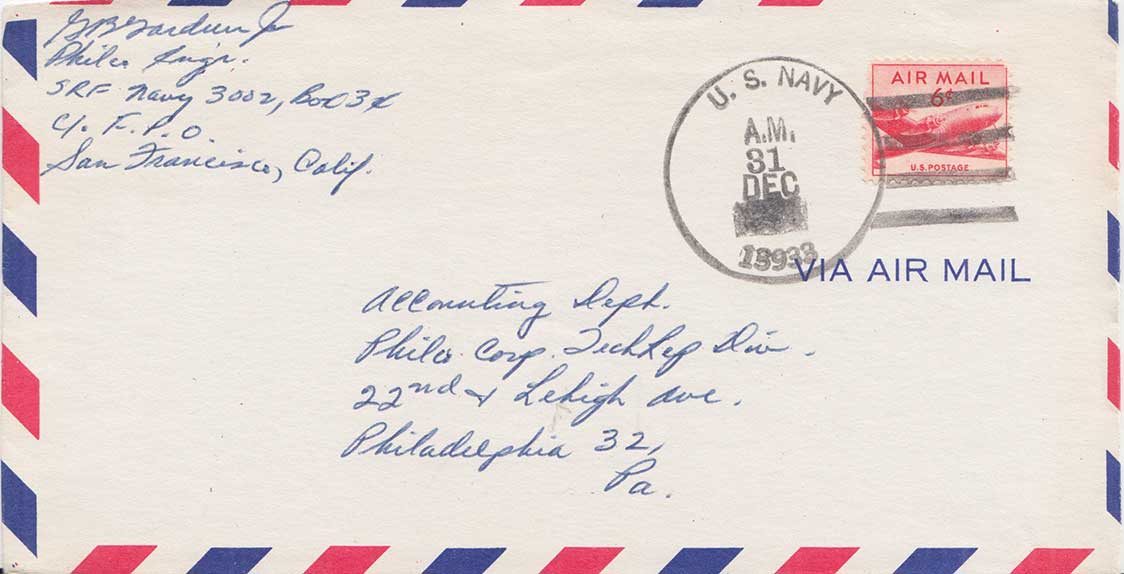 G B Gardner Jr
Philco Engr.
SRF Navy 3002, Box 3
c/o F.P.O.
San Francisco, Calif.
U. S. NAVY
A.M.
31
DEC
AIR MAIL
6¢
U.S. POSTAGE
VIA AIR MAIL
Accounting Dept.
Philco Corp. TechRep Div.
22nd & Lehigh Ave.
Philadelphia 32,
Pa.